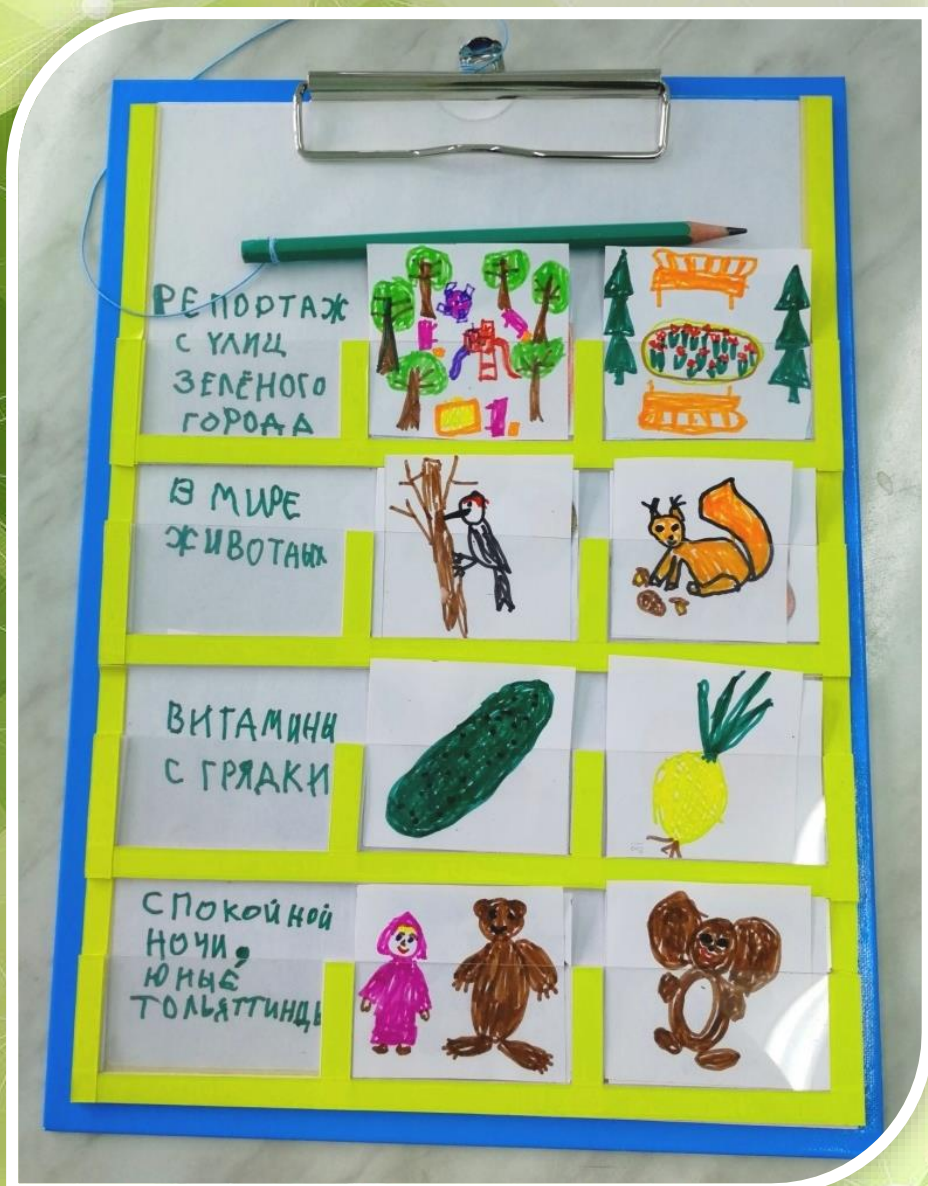 РЕПОРТАЖ
С УЛИЦ
ЗЕЛЁНОГО
ГОРОДА
В МИРЕ
ЖИВОТНЫХ
ВИТАМИНЫ
С ГРЯДКИ
СПОКОЙНОЙ
НОЧИ,
ЮНЫЕ
ТОЛЬЯТТИНЦЫ